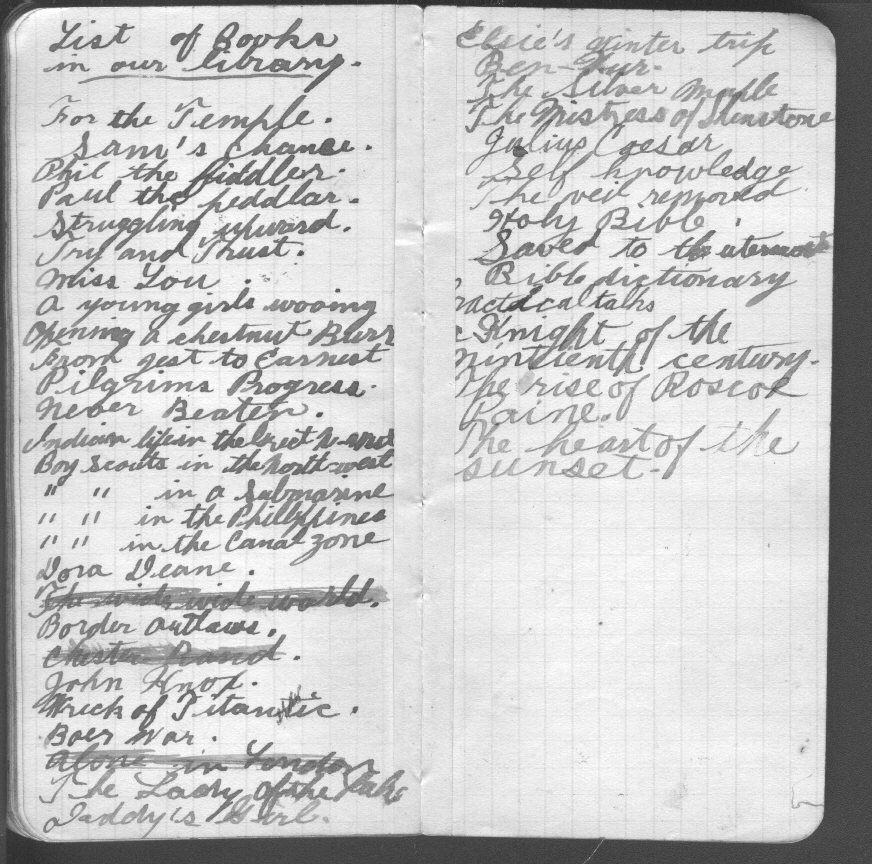 List of Books
in our library.
For the Temple.
Sam's chance.
Phil the fiddler.
Paul the peddlar.
Struggling upward.
Try and Trust.
Miss You.
A young girls wooing
Opening a chestnut Burr
From jest to Earnest
Pilgrims Progress.
Never Beaten.
Indian life in the Great N-West
Boy Scouts in the North-west
" " in a Submarine
" " in the Philippines
" " in the Canal zone
Dora Deane.
The wide wide world.
Border Outlaws.
Chester Rand.
John Knox.
Wreck of Titantic.
Boer War.
Alone in London
The Lady of the Lake
Daddy's Girl.
Elsie's winter trip
Ben-Hur.
The Silver Maple
The Mistress of Shenstone
Julius Caesar
Self knowledge
The veil removed
Holy Bible
Saved to the utermost
Bible dictionary
Practical talks
Knight of the
Nineteenth century.
The rise of Roscoe
Paine.
The heart of the
sunset.